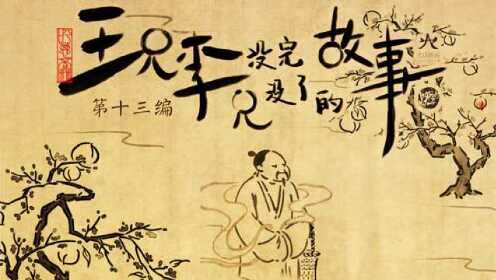 王兄李兄没完没了的故事
第十三编